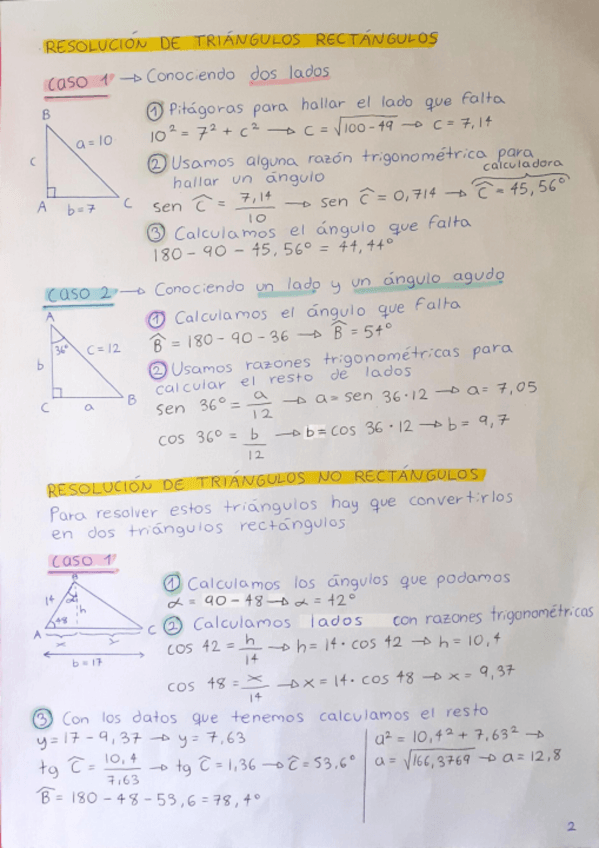 RESOLUCIÓN DE TRIÁNGULOS RECTÁNGULOS
CASO 1 → Conociendo dos lados
B
c
a = 10
A
b = 7
C
① Pitágoras para hallar el lado que falta
10² = 7² + c² → c = √100 - 49 → c = 7,14
② Usamos alguna razón trigonométrica para
hallar un ángulo
calculadora
sen Ĉ = 7,14/10 → sen Ĉ = 0,714 → Ĉ = 45,56º
③ Calculamos el ángulo que falta
180 - 90 - 45,56º = 44,44º
CASO 2 → Conociendo un lado y un ángulo agudo
A
36º
b
c = 12
C
a
B
① Calculamos el ángulo que falta
B̂ = 180 - 90 - 36 → B̂ = 54º
② Usamos razones trigonométricas para
calcular el resto de lados
sen 36º = a/12 → a = sen 36 · 12 → a = 7,05
cos 36º = b/12 → b = cos 36 · 12 → b = 9,7
RESOLUCIÓN DE TRIÁNGULOS NO RECTÁNGULOS
Para resolver estos triángulos hay que convertirlos
en dos triángulos rectángulos
CASO 1
B
14
α
h
48
A
C
x
y
b = 17
① Calculamos los ángulos que podamos
α = 90 - 48 → α = 42º
② Calculamos lados con razones trigonométricas
cos 42 = h/14 → h = 14 · cos 42 → h = 10,4
cos 48 = x/14 → x = 14 · cos 48 → x = 9,37
③ Con los datos que tenemos calculamos el resto
y = 17 - 9,37 → y = 7,63
tg Ĉ = 10,4/7,63 → tg Ĉ = 1,36 → Ĉ = 53,6º
B̂ = 180 - 48 - 53,6 = 78,4º
a² = 10,4² + 7,63² →
a = √166,3769 → a = 12,8
2